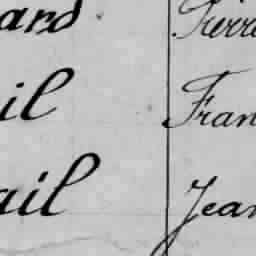 ard Pierre
il Fran
ail Jean